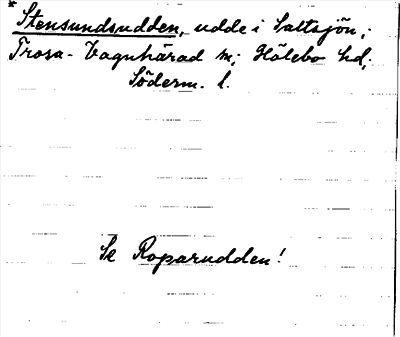 * Stensundsudden, udde i Saltsjön,
Trosa-Vagnhärad sn; Hölebo hd;
Söderm. l.
Se Roparudden!